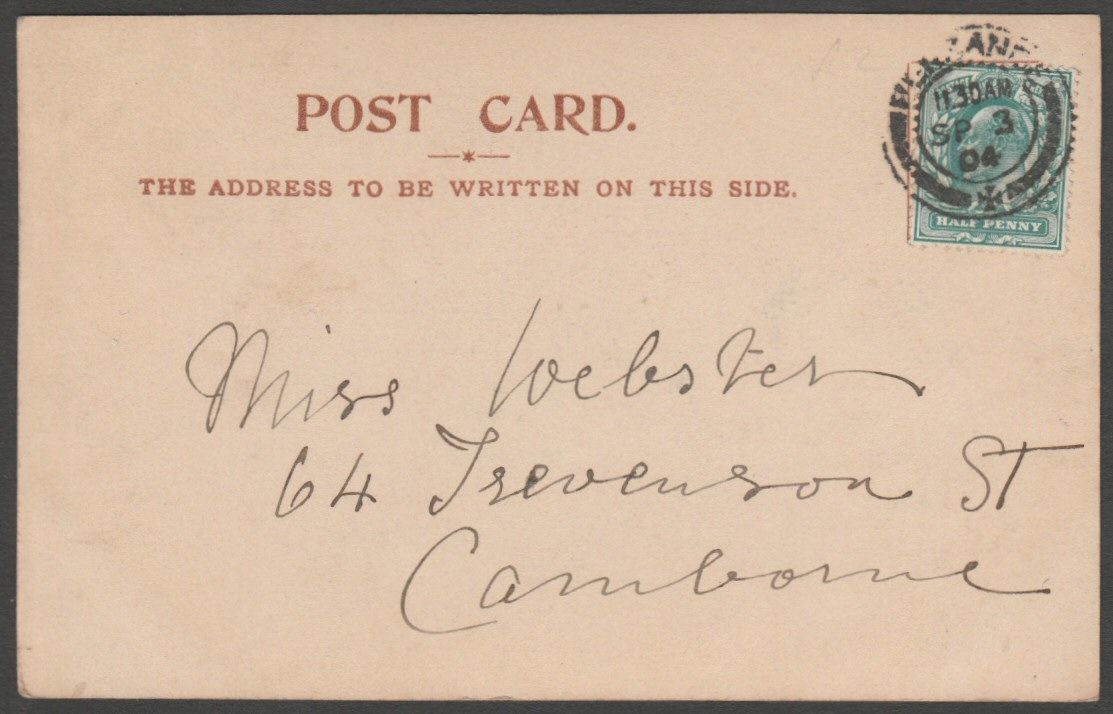 POST CARD.
THE ADDRESS TO BE WRITTEN ON THIS SIDE.
PENZANCE
11.30AM
SP 3
04
HALF PENNY
Miss Webster
64 Trevenson St
Camborne